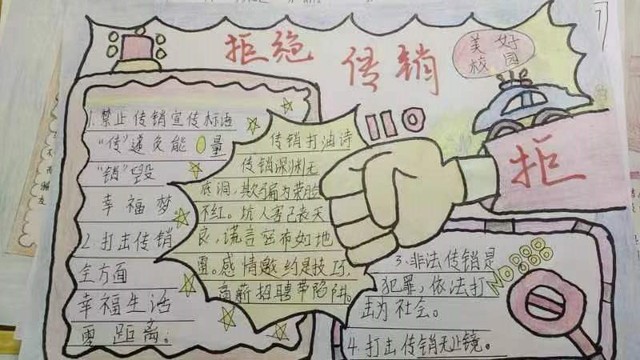 拒绝 传销
美好
校园
7
1.禁止传销宣传标语
"传"递负能0量
"销"毁
幸福梦
2.打击传销
全方面
幸福生活
零距离。
传销打油诗
传销深渊无
底洞,欺骗为荣脸
不红。坑人害己丧天
良,谎言密布如地
雷。感情邀约是技巧,
高薪招聘带陷阱。
110
拒
3.非法传销是
犯罪,依法打
击为社会。
4.打击传销无止境。
NO